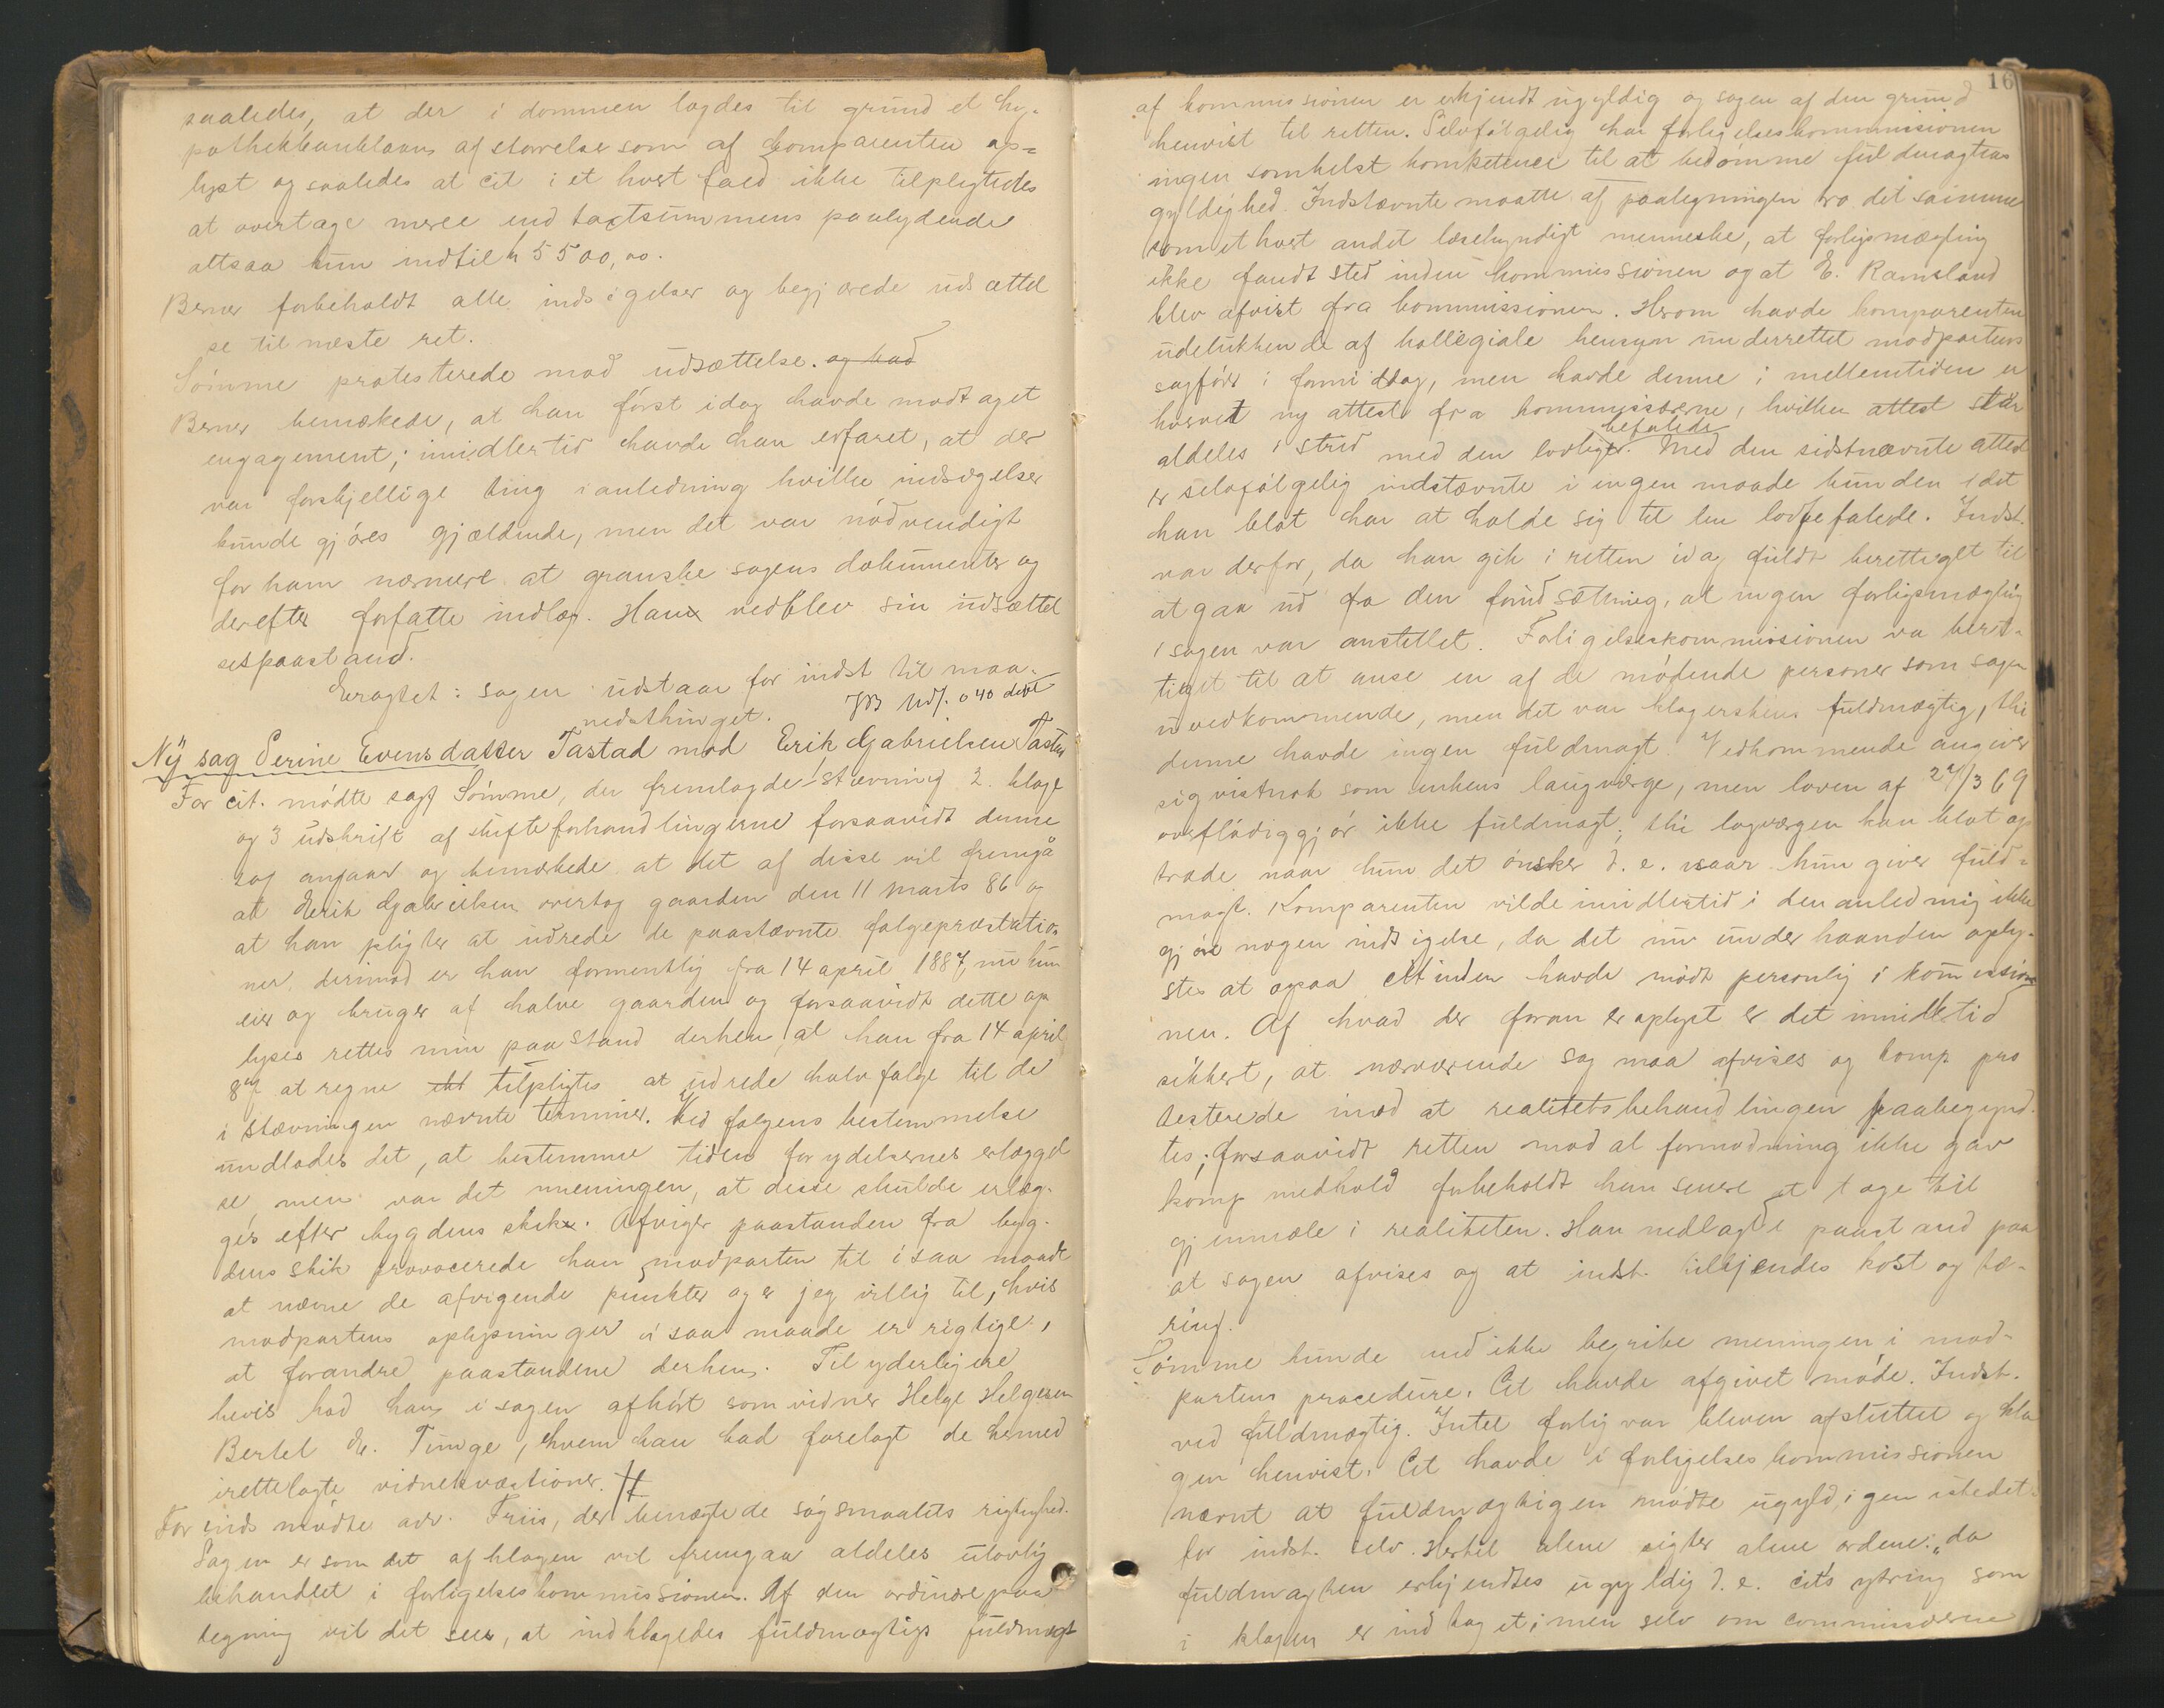 saaledes, at der i dommen lagdes til grund et hy-
pothekbanklaans af størrelse som af Comparenten op-
lyst og saaledes at cit i et hvert fald ikke tilpligtedes
at overtage mere end taxtsummens paalydende
altsaa kun indtil kr 5500,00.
Berner forbeholdt alle indsigelser og begjærede udsættel
se til næste ret.
Sømme protesterede mod udsættelse. og bad
Berner bemærkede, at han først idag havde modtaget
engagement; imidlertid havde han erfaret, at der
var forskjellige ting i anledning hvilke indsigelser
kunde gjøres gjældende, men det var nødvendigt
for ham nærmere at granske sagens dokumenter og
derefter forfatte indlæg. Han vedblev sin udsættel
sespaastand.
Eragtet: sagen udstaar for indst til maa-
nedsthinget.
Ny sag Serine Evensdatter Tastad mod Erik Gabrielsen Tastad
For cit. mødte sagf Sømme, der fremlagde stævning 2. klage
og 3 udskrift af skifteforhandlingerne forsaavidt denne
sag angaar og bemærkede at det af disse vil fremgå
at Erik Gabrielsen overtog gaarden den 11 marts 86 og
at han pligter at udrede de paastævnte folgepræstatio
ner, derimod er han formentlig fra 14 april 1887, nu kun
eier og bruger af halve gaarden og forsaavidt dette op
lyses rettes min paastand derhen, at han fra 14 april
87 at regne tilpligtes at udrede halv folge til de
i stævningen nævnte terminer. Ved folgens bestemmelse
undlodes det, at bestemme tiden for ydelsernes erlæggel
se, men var det meningen, at disse skulde erlæg-
ges efter bygdens skik. Afviger paastanden fra byg-
dens skik provocerede han modparten til i saa maade
at nævne de afvigende punkter og er jeg villig til, hvis
modpartens oplysninger i saa maade er rigtige,
at forandre paastandene derhen. Til yderligere
bevis bad han i sagen afhørt som vidner Helge Helgesen
Bertel Tunge, hvem han bad forelagt de hermed
irettelagte vidnekvæstioner.
For inds mødte adv. Friis, der benægtede søgsmaalets rigtighed.
Sagen er som det af klagen vil fremgaa aldeles ulovlig
behandlet i forligelseskommissionen. Af den ordinære paa
tegning vil det sees, at indklagedes fuldmægtigs fuldmagt
16
af kommissionen er erkjendt ugyldig og sagen af den grund
henvist til retten. Selvfølgelig har forligelseskommmisionen
ingen somhelst komketence til at bedømme fuldmagtens
gyldighed. Indstævnte maatte af paategningen tro det samme
som et hvert andet læsekyndigt menneske, at forligsmægling
ikke fandt sted inden kommissionen og at E. Ramsland
blev afvist fra kommissionen. Herom havde komparenten
udelukkende af kollegiale hensyn underrettet modpartens
sagfører i formiddag, men havde denne i mellemtiden er
hvervet ny attest fra kommissærerne, hvilken attest står
befalede
aldeles i strid med den lovlige. Med den sidstnævnte attest
er selvfølgelig indstævnte i ingen maade bunden idet
han blot har at holde sig til den lovbefalede. Indst.
var derfor, da han gik i retten idag fuldt berettiget til
at gaa ud fra den forudsætning, at ingen forligsmægling
i sagen var anstillet. Forligelseskommissionen var beret-
tiget til at anse en af de mødende personer som sagen
uvedkommende, men det var klagerskens fuldmægtig, thi
denne havde ingen fuldmagt. Vedkommende angiver
sig vistnok som enkens laugværge, men loven af
overflødiggjør ikke fuldmagt; thi lagværgen kan blot op
træde naar hun det ønsker d. e. naar hun giver fuld-
magt. Komparenten vilde imidlertid i den anledning ikke
gjøre nogen indsigelse, da det nu under haanden oply-
stes at ogsaa citinden havde mødt personlig i kommission
nen. Af hvad der foran er oplyst er det imidlertid
sikkert, at nærværende sag maa afvises og komp pro
testerede mod at realitetsbehandlingen paabegynd-
tes; forsaavidt retten mod al formodning ikke gav
komp medhold forbeholdt han senere at tage til
gjenmæle i realiteten. Han nedlagde paastand paa
at sagen afvises og at indst. tilkjendes kost og tæ-
ring.
Sømme kunde ikke begribe meningen i mod-
partens procedure. Cit havde afgivet møde. Indst.
ved fuldmægtig. Intet forlig var bleven afsluttet og kla
gen henvist. Cit havde i forligelseskommissionen
nævnt at fuldmægtigen mødte ugyldigen istedet-
for indst. selv. Hertil alene sigter alene ordene: „da
fuldmagten erkjendtes ugyldig d. e. cits ytring som
i klagen er indtaget; men selv om commissærerne